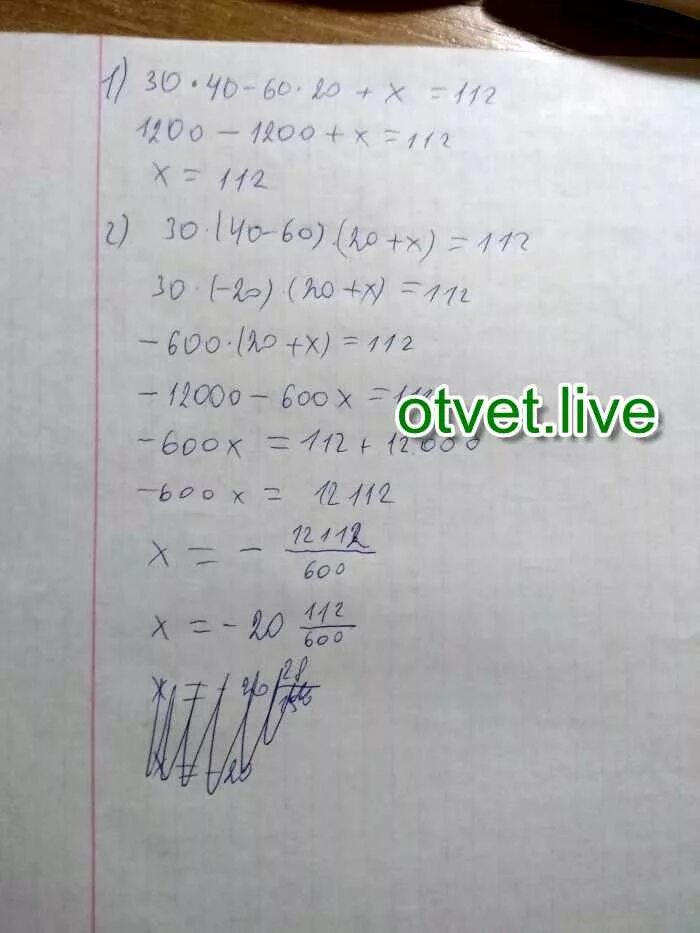 1) 30 · 40 - 60 · 20 + x = 112
1200 - 1200 + x = 112
x = 112
2) 30 · (40 - 60) · (20 + x) = 112
30 · (-20) · (20 + x) = 112
-600 · (20 + x) = 112
-12000 - 600x = 112
otvet.live
-600x = 112 + 12000
-600x = 12112
x = - 12112/600
x = -20 112/600